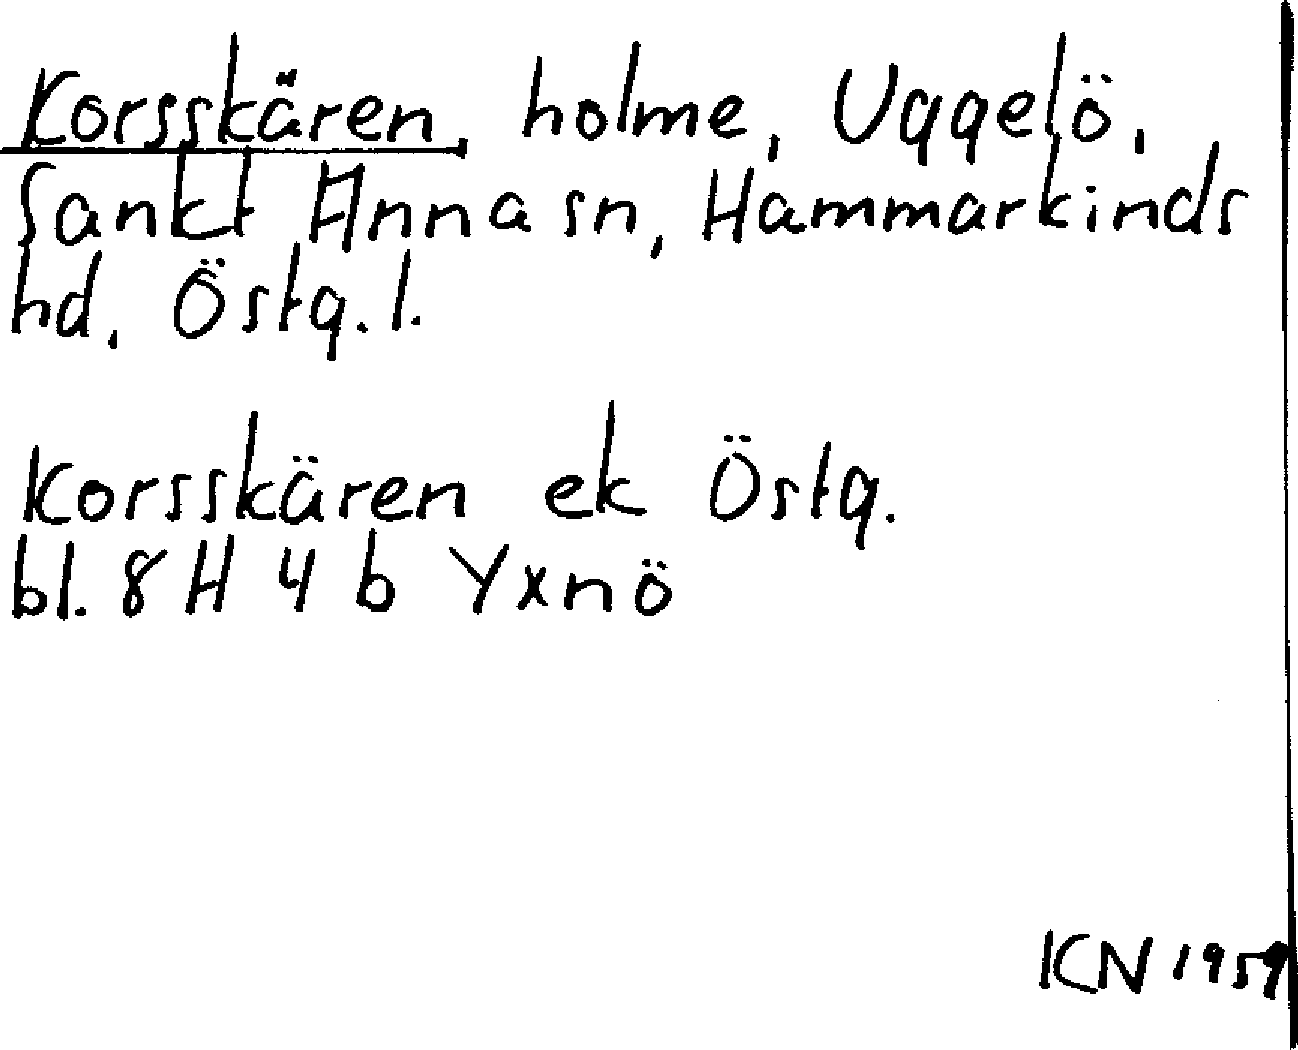 Korsskären, holme, Uggelö,
Sankt Anna sn, Hammarkinds
hd, Östg. l.
Korsskären ek Östg.
bl. 8H 4 b Yxnö
KN 1959